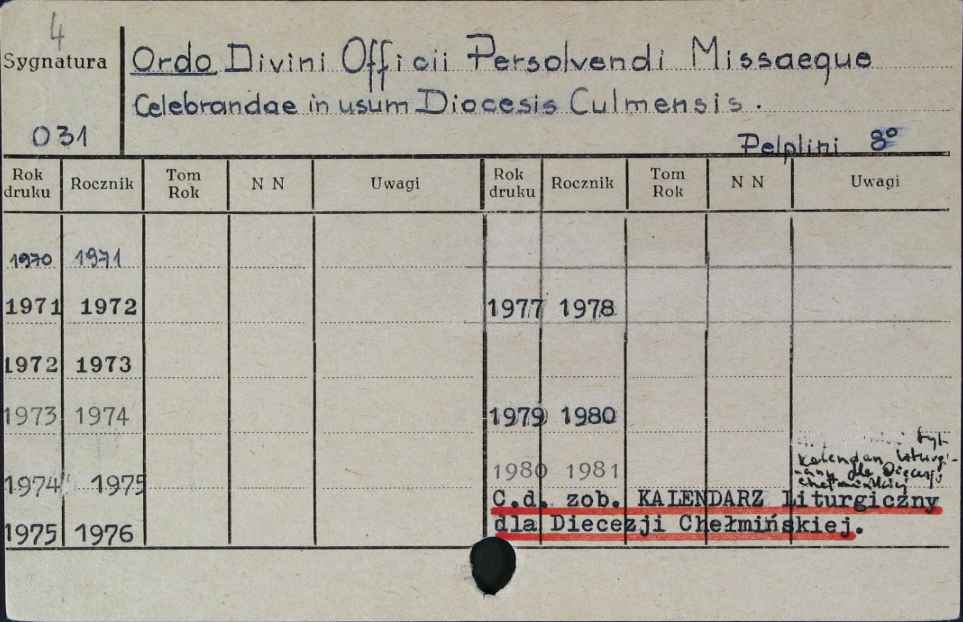 4
Sygnatura
031
Ordo Divini Officii Persolvendi Missaeque
Celebrandae in usum Diocesis Culmensis.
Pelplini 8°
Rok druku Rocznik Tom Rok N N Uwagi Rok druku Rocznik Tom Rok N N Uwagi
1970 1971
1971 1972
1972 1973
1973 1974
1974 1975
1975 1976
1977 1978
1979 1980
1980 1981
tyt.
Kalendarz liturgi-
dla Diecezji
chełmińskiej
C.d. zob. KALENDARZ Liturgiczny
dla Diecezji Chełmińskiej.